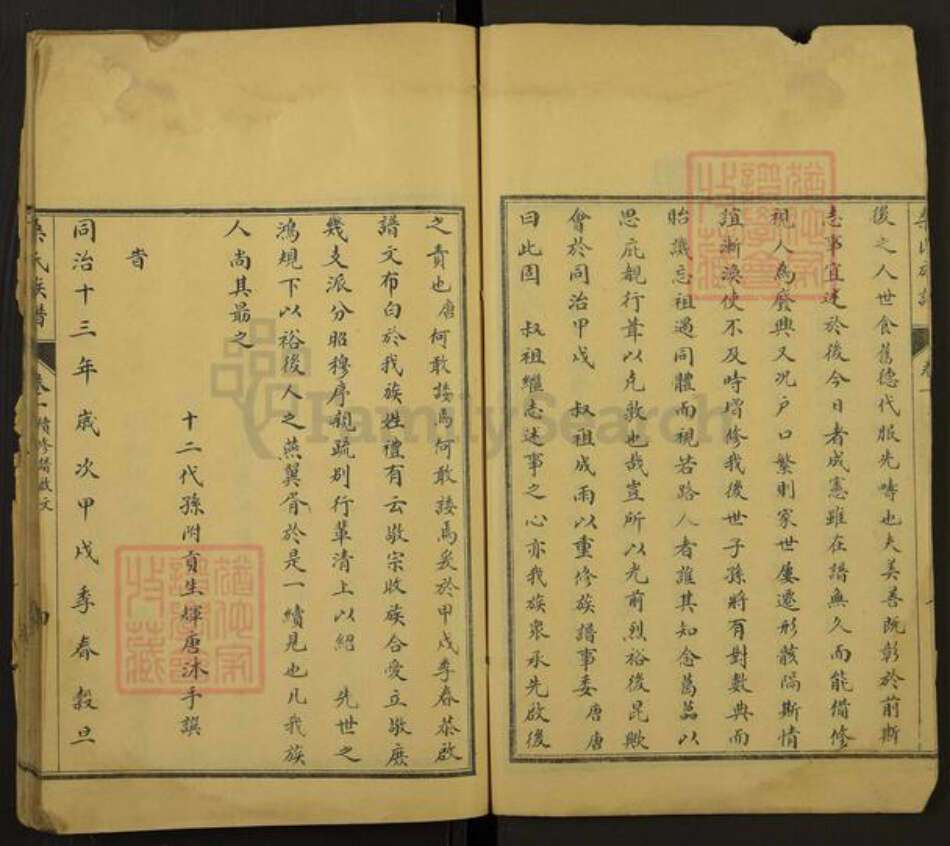 後之人世食舊德代服先疇也夫美善既彰於前斯
志事宜述於後今日者成憲雖在譜無久而能備修
視人為廢興又況戶口繁則家世屢遷形骸隔斯情
誼漸渙使不及時增修我後世子孫將有對數典而
貽譏忘祖過同體而視若路人者誰其知念葛藟以
思庇觀行葦以克敦也哉豈所以光前烈裕後昆歟
會於同治甲戌 叔祖成雨以重修族譜事委唐唐
曰此固 叔祖繼志述事之心亦我族眾承先啟後
之責也唐何敢諉焉何敢諉焉爰於甲戌季春恭啟
譜文布白於我族姓禮有云敬宗收族合愛立敬庶
幾支派分昭穆序親疏別行輩清上以紹 先世之
鴻規下以裕後人之燕翼胥於是一續見也凡我族
人尚其勗之
旹
十二代孫附貢生輝唐沐手譔
同治十三年歲次甲戌季春穀旦
氏族譜 卷一續修譜啟文
FamilySearch